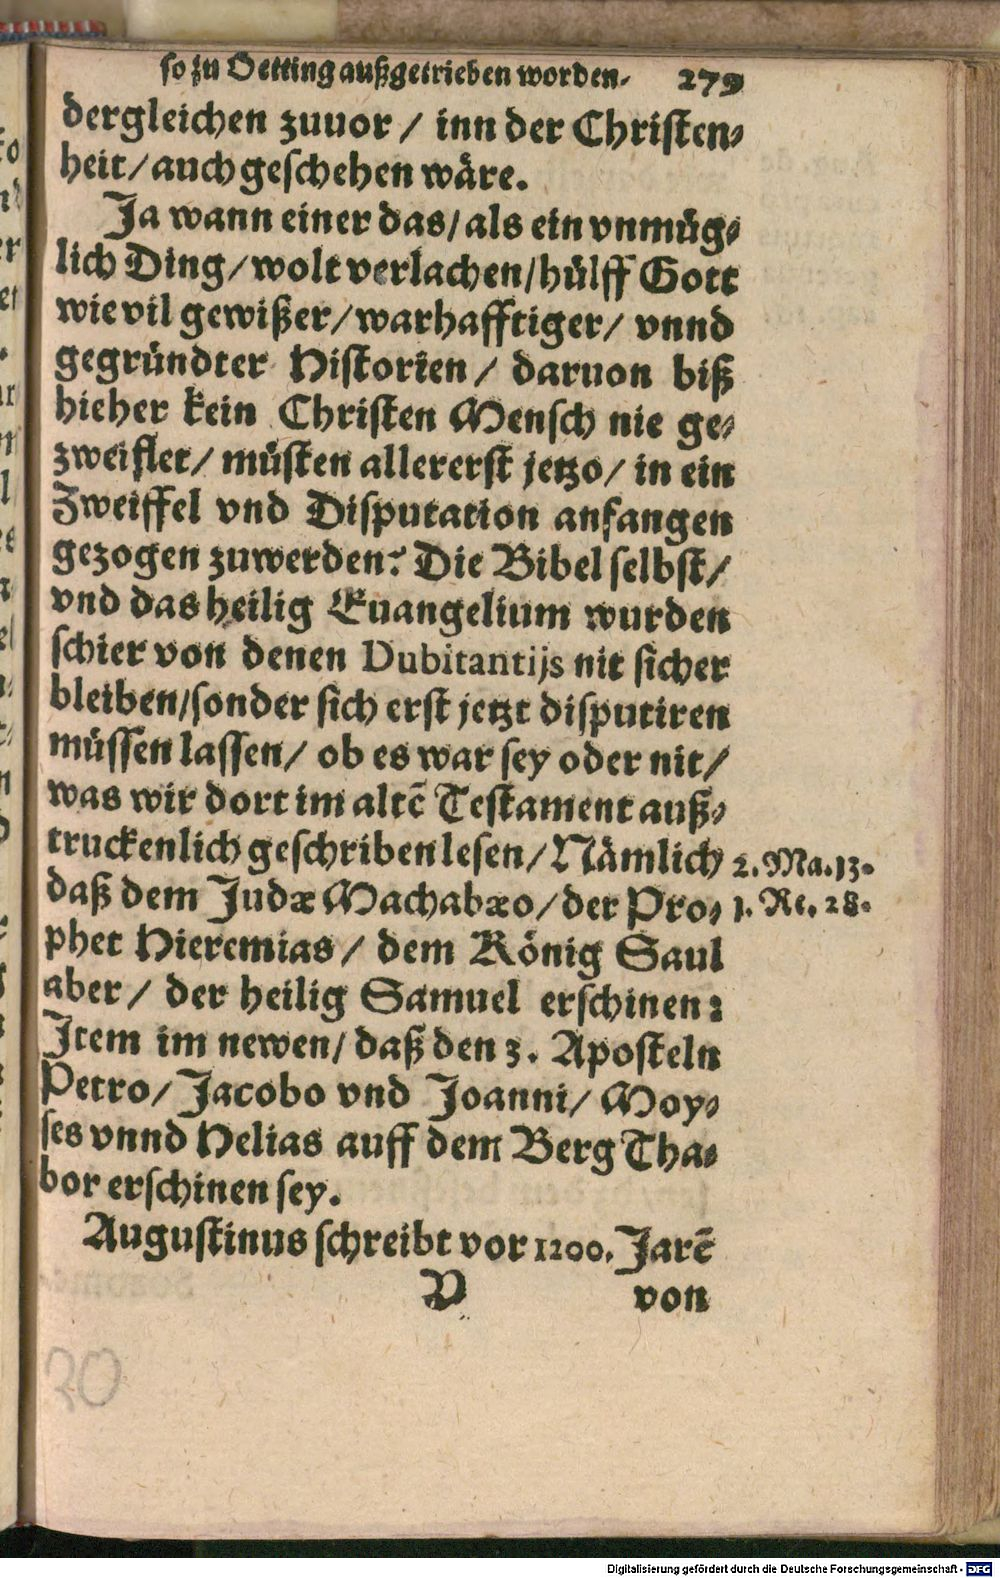 so zu Oetting außgetrieben worden. 279
dergleichen zuuor / inn der Christen⸗
heit / auch geschehen wäre.
Ja wann einer das / als ein vnmüg⸗
lich Ding / wolt verlachen / hülff Gott
wie vil gewißer / warhafftiger / vnnd
gegründter Historien / daruon biß
hieher kein Christen Mensch nie ge⸗
zweiflet / müsten allererst jetzo / in ein
Zweiffel vnd Disputation anfangen
gezogen zuwerden? Die Bibel selbst /
vnd das heilig Euangelium wurden
schier von denen Dubitantijs nit sicher
bleiben / sonder sich erst jetzt disputiren
müssen lassen / ob es war sey oder nit /
was wir dort im altē Testament auß⸗
truckenlich geschriben lesen / Nämlich 2. Ma. 13.
daß dem Judæ Machabæo / der Pro⸗ 1. Re. 28.
phet Hieremias / dem König Saul
aber / der heilig Samuel erschinen:
Item im newen / daß den 3. Aposteln
Petro / Jacobo vnd Joanni / Moy⸗
ses vnnd Helias auff dem Berg Tha⸗
bor erschinen sey.
Augustinus schreibt vor 1200. Jarē
V von
30
Digitalisierung gefördert durch die Deutsche Forschungsgemeinschaft - DFG